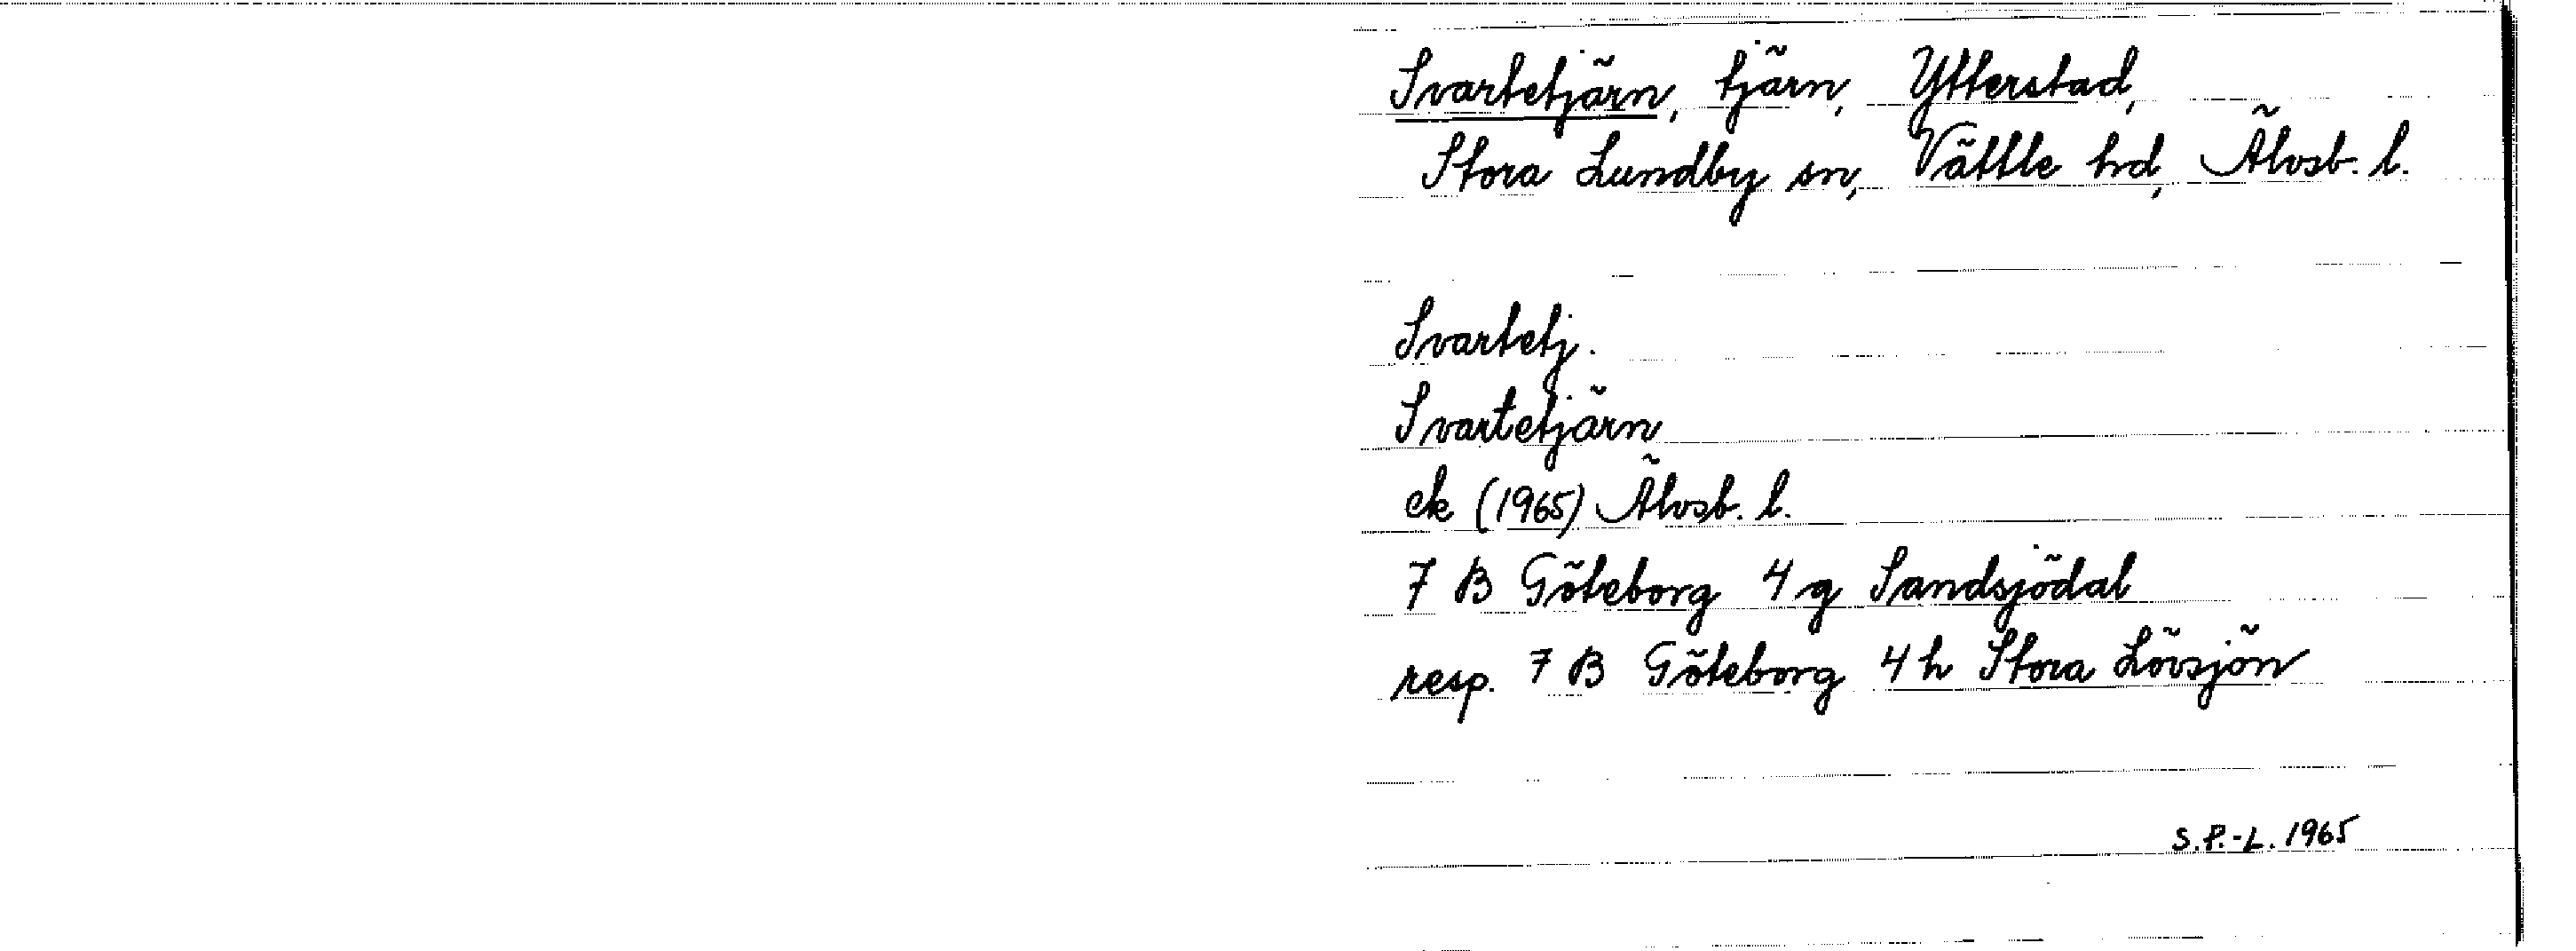 Svartetjärn, tjärn, Ytterstad,
Stora Lundby sn, Vättle hd, Älvsb. l.
Svartetj.
Svartetjärn
ek (1965) Älvsb. l.
7 B Göteborg 4 g Sandsjödal
resp. 7 B Göteborg 4 h Stora Lövsjön
S.P.-L. 1965